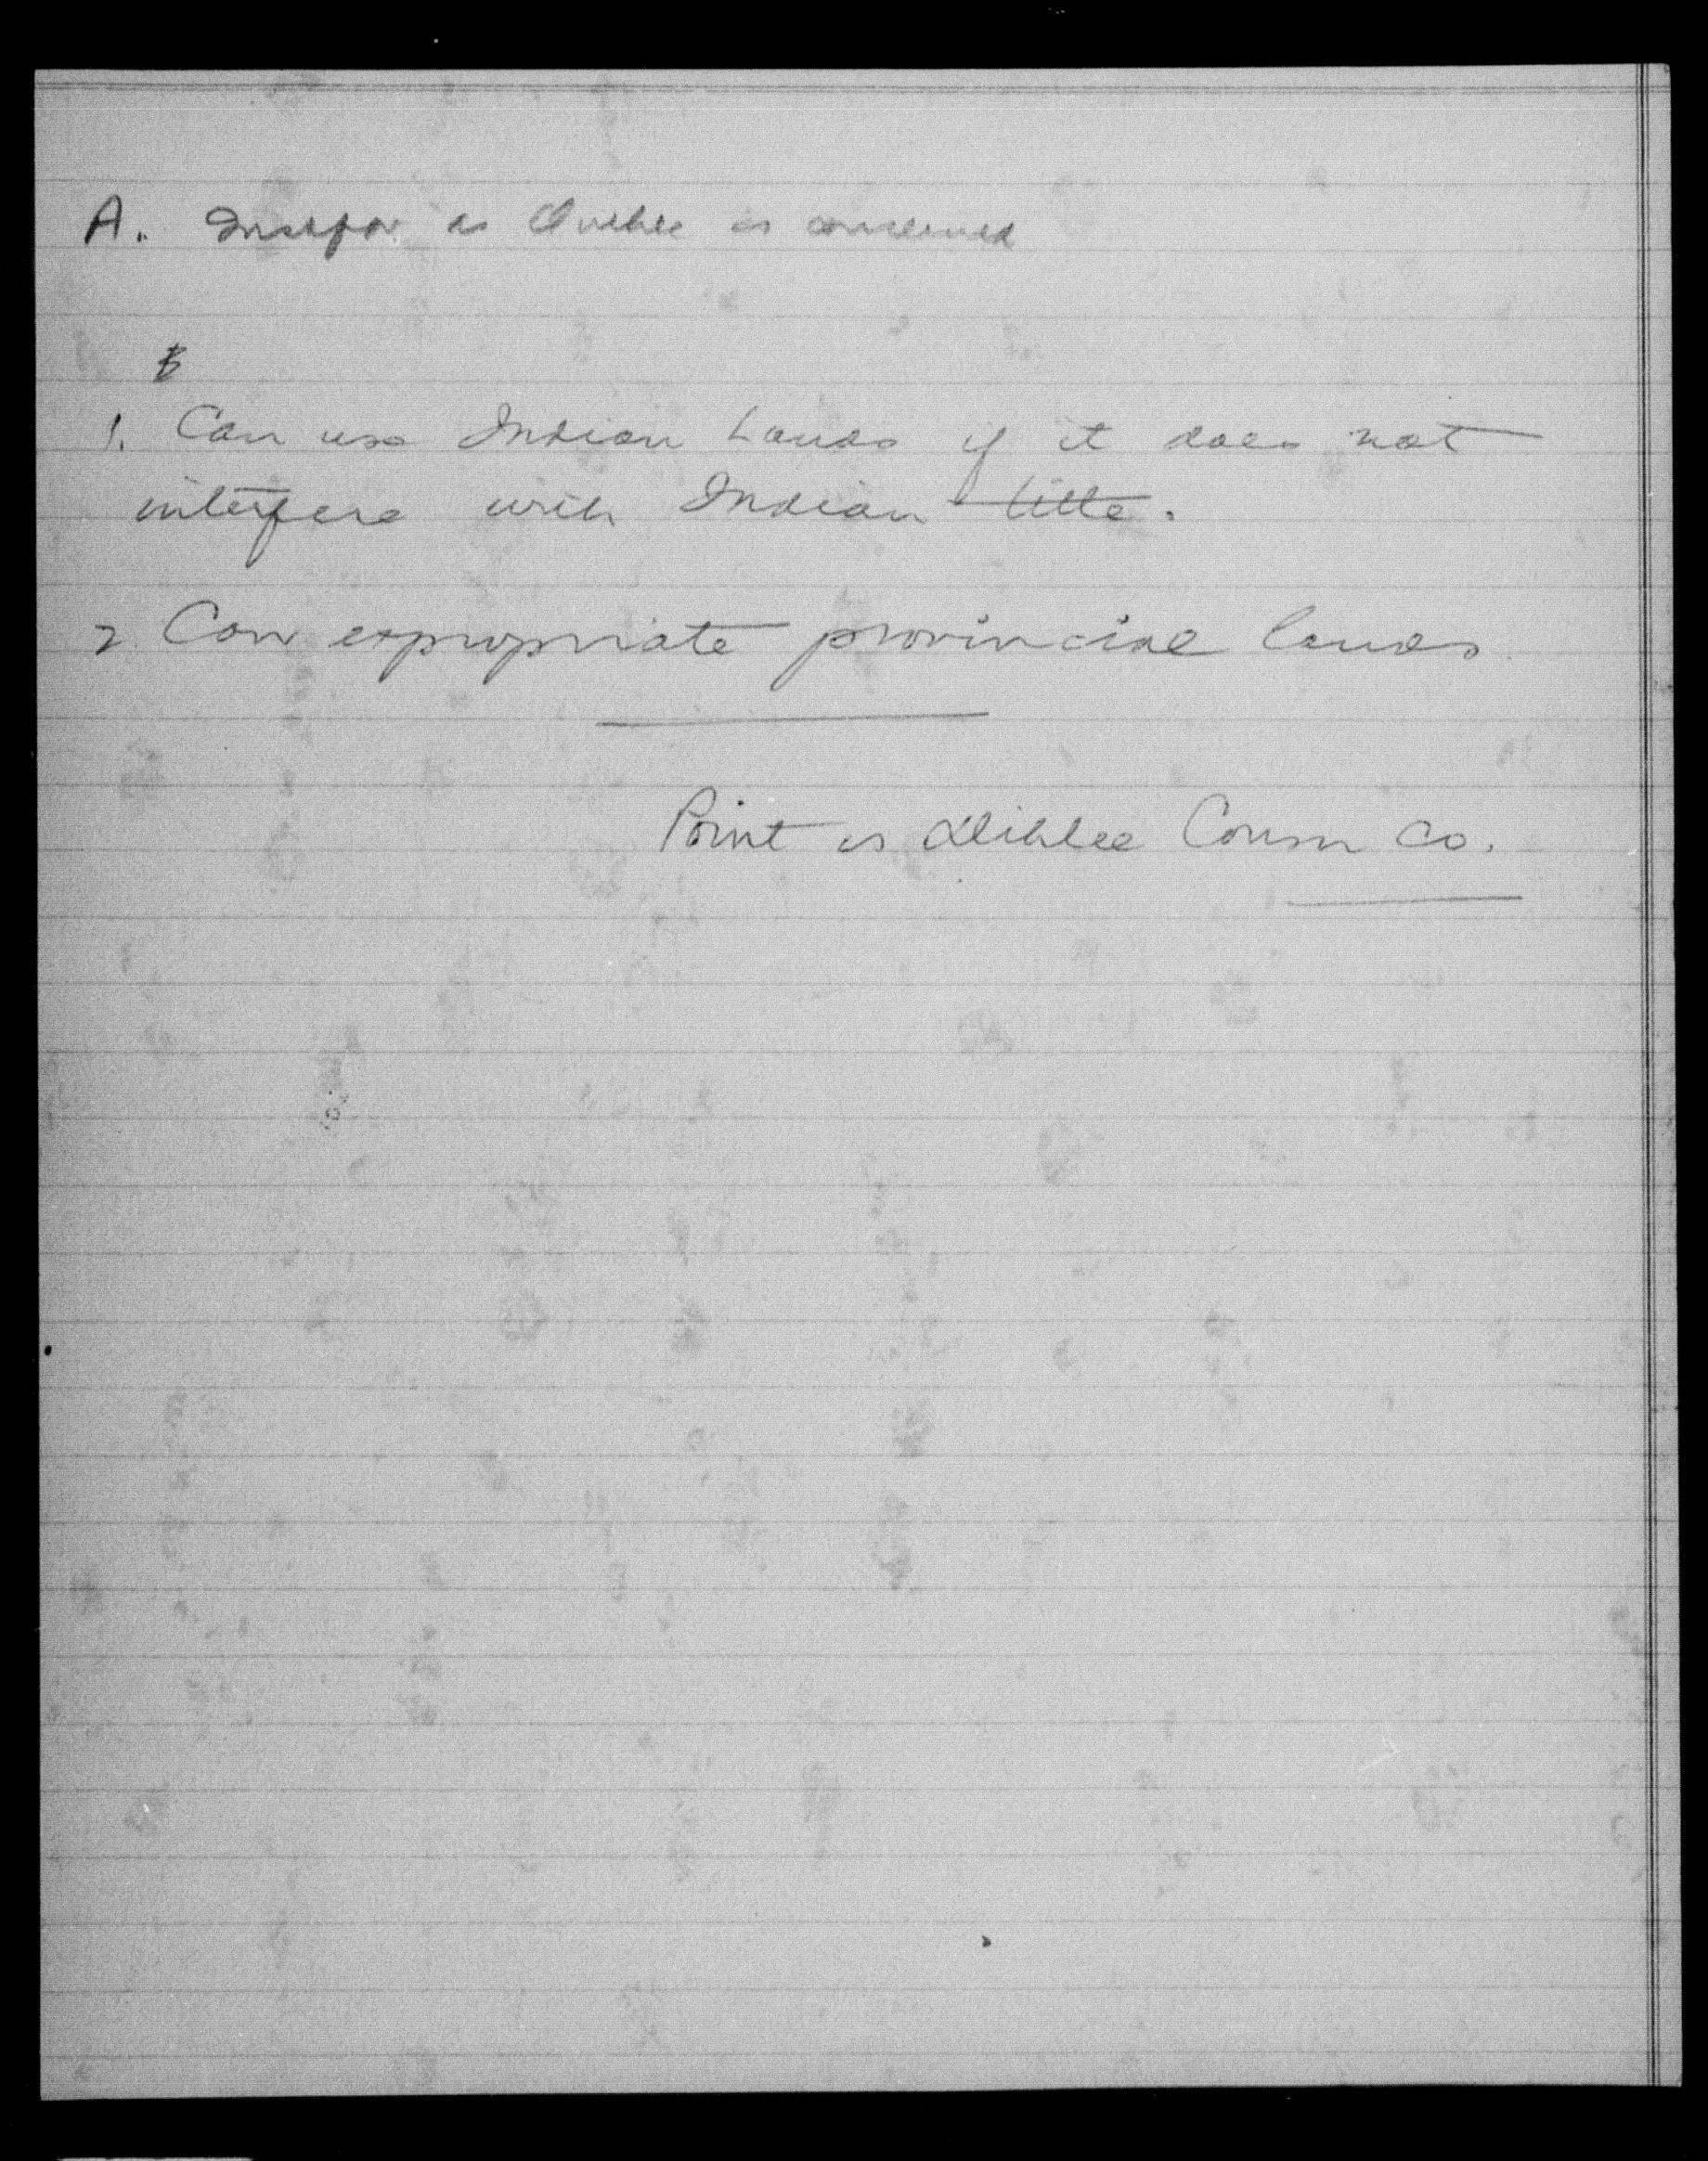 A. Insofar as Quebec is concerned
B
1. Can use Indian Lands if it does not
interfere with Indian title.
2. Can expropriate provincial lands
Point is Co.